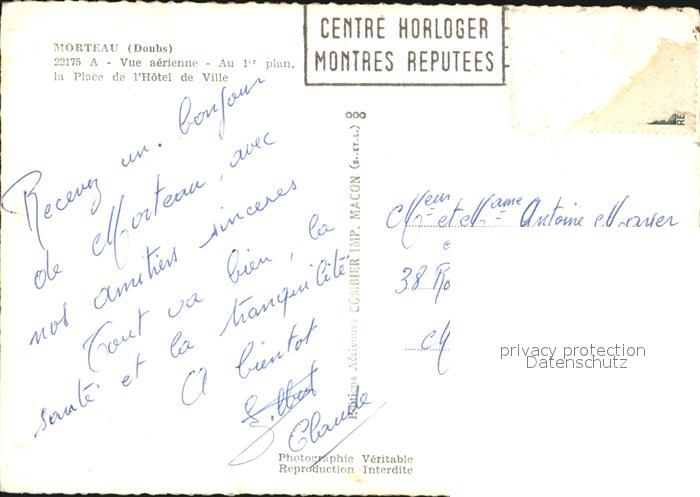 MORTEAU (Doubs)
22175 A - Vue aérienne - Au 1er plan,
la Place de l'Hôtel de Ville
CENTRE HORLOGER
MONTRES REPUTEES
Recevez un bonjour
de Morteau, avec
nos amitiés sincères
Tout va bien, la
santé et la tranquilité.
A bientot
Gilbert
Claude
Editions Aériennes COMBIER IMP. MACON (S.-ET-L.)
Meur et Mame Antoine
38 Ro
privacy protection
Datenschutz
Photographie Véritable
Reproduction Interdite